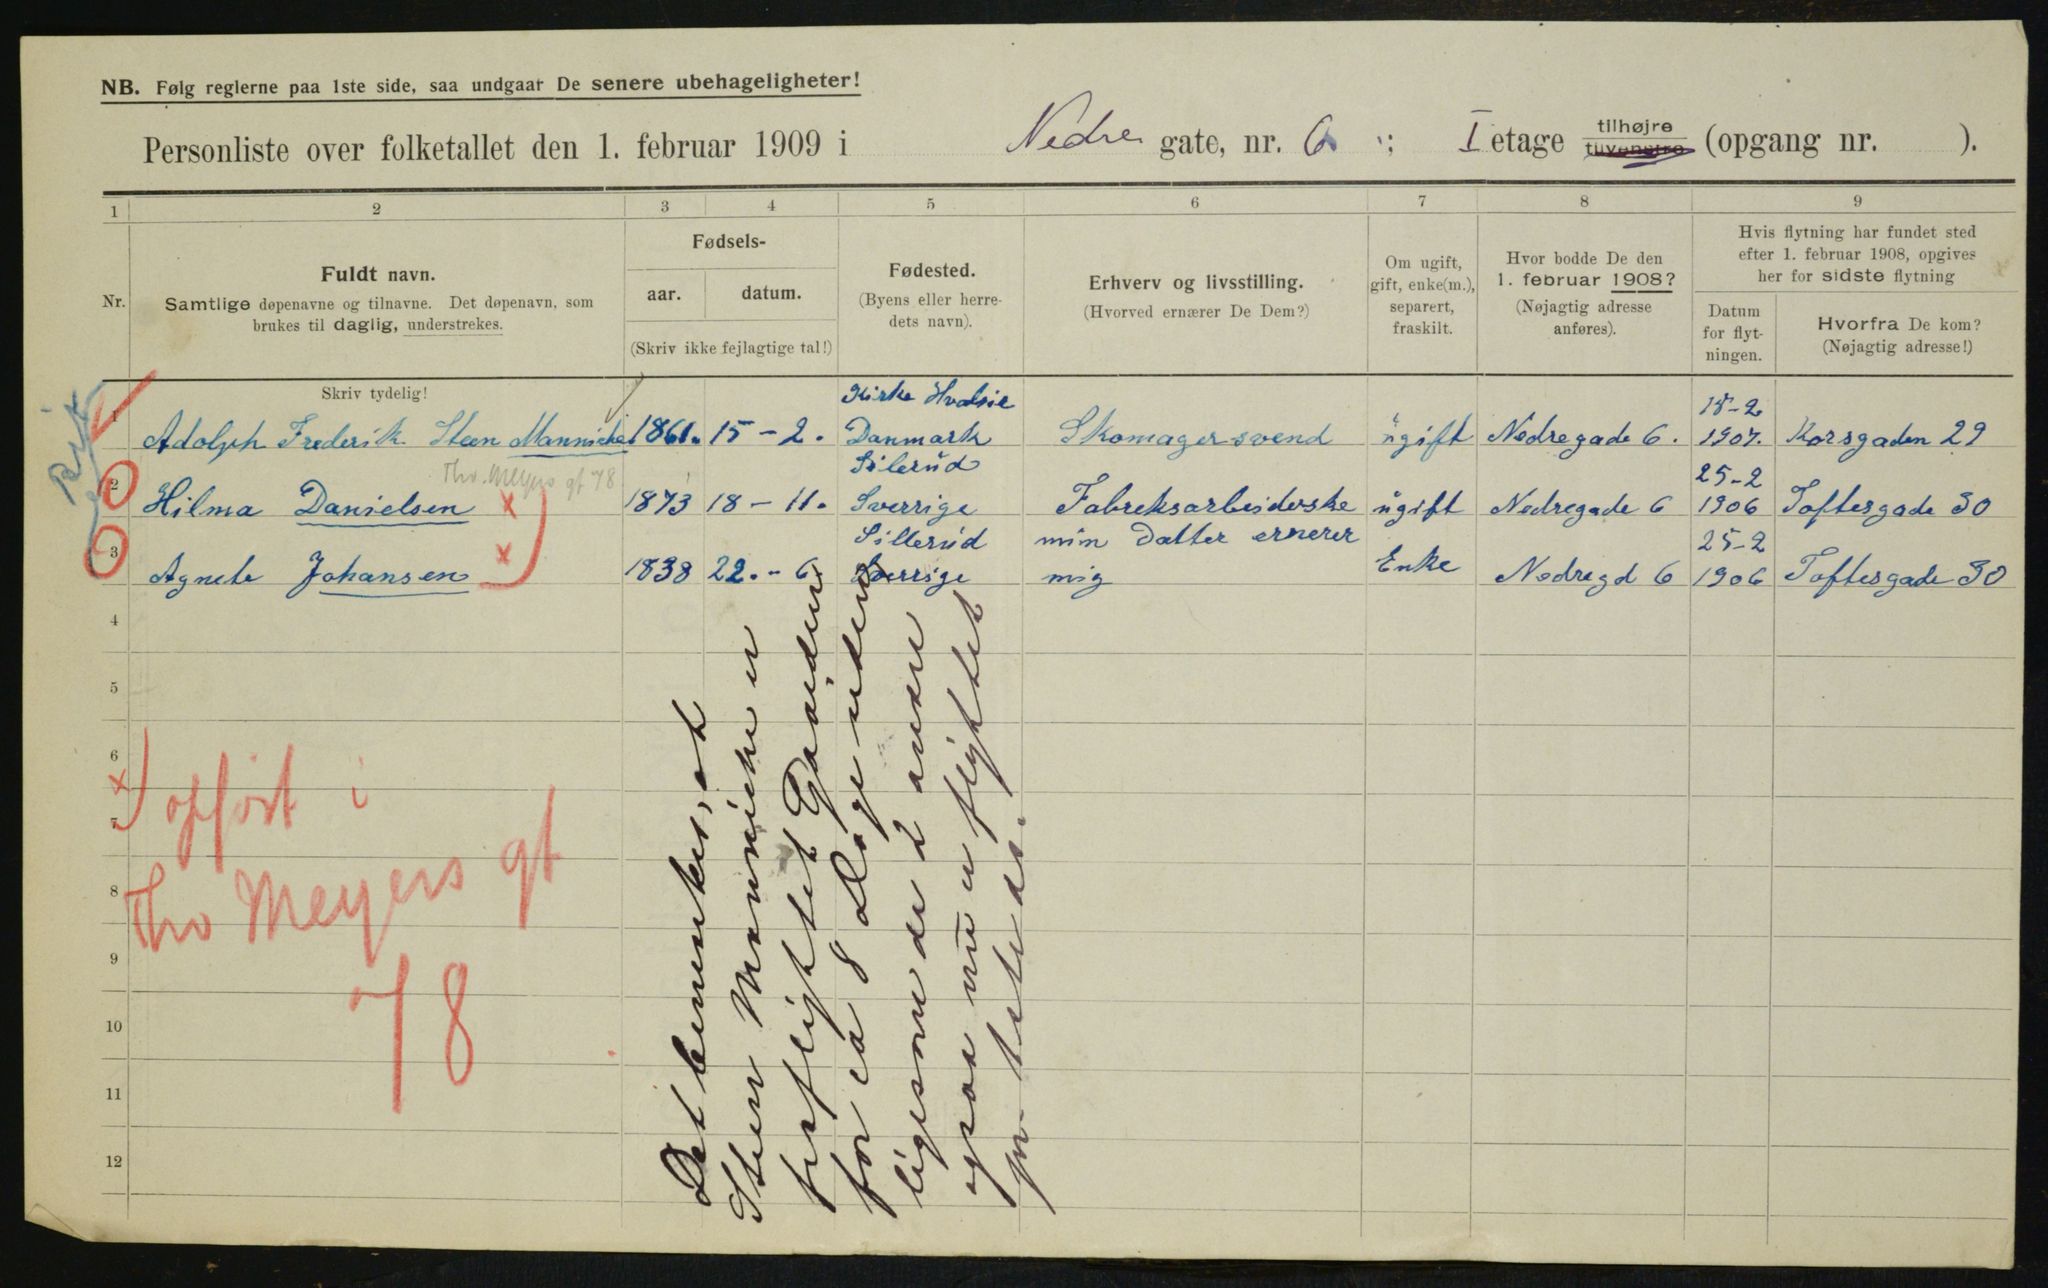 NB. Følg reglerne paa 1ste side, saa undgaar De senere ubehageligheter!
Personliste over folketallet den 1. februar 1909 i Nedre gate, nr. 6 ; I etage tilhøjre tilvenstre (opgang nr. ).
1 2 3 4 5 6 7 8 9
Nr.
Fuldt navn.
Samtlige døpenavne og tilnavne. Det døpenavn, som
brukes til daglig, understrekes.
Fødsels-
aar. datum.
(Skriv ikke fejlagtige tal!)
Fødested.
(Byens eller herre-
dets navn).
Erhverv og livsstilling.
(Hvorved ernærer De Dem?)
Om ugift,
gift, enke(m.),
separert,
fraskilt.
Hvor bodde De den
1. februar 1908?
(Nøjagtig adresse
anføres).
Hvis flytning har fundet sted
efter 1. februar 1908, opgives
her for sidste flytning
Datum
for flyt-
ningen.
Hvorfra De kom?
(Nøjagtig adresse!)
Skriv tydelig!
Kirke Hvalsie 15-2
1 Adolph Frederik Steen Manniche 1861. 15 - 2. Danmark Skomagersvend ugift Nedregade 6. 1907. Korsgaden 29
Tho. Meyers gt 78
Silerud 25-2
2 Hilma Danielsen x 1873 18 - 11. Sverrige Fabreksarbeiderske ugift Nedregade 6 1906 Toftesgade 30
Sillerud min Datter ernerer 25-2
3 Agnete Johansen x 1838 22. - 6 Sverrige mig Enke Nedregd 6 1906 Toftesgade 30
4
5
6
7
8
9
10
11
12
x opført i
Tho Meyers gt
78
Det bemerkes, at
Steen Manniche er
fraflyttet Gaarden
for ca 8 Dage siden
ligesom de 2 andre
ogsaa nu er flyttet